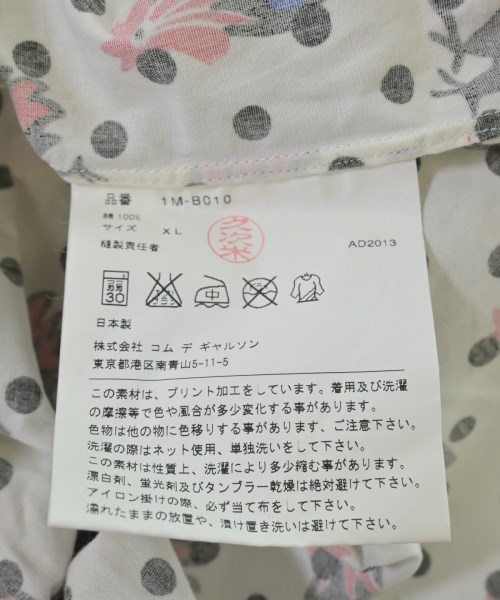 品番 1M-B010
綿 100%
サイズ XL
縫製責任者
AD2013
弱 30
エンソサラシ
中
ドライ
日本製
株式会社 コム デ ギャルソン
東京都港区南青山5-11-5
この素材は、プリント加工をしています。着用及び洗濯
の摩擦等で色や風合が多少変化する事があります。
色物は他の物に色移りする事があります、ご注意下さい。
洗濯の際はネット使用、単独洗いをして下さい。
この素材は性質上、洗濯により多少縮む事があります。
漂白剤、蛍光剤及びタンブラー乾燥は絶対避けて下さい。
アイロン掛けの際、必ず当て布をして下さい。
濡れたままの放置や、漬け置き洗いは避けて下さい。